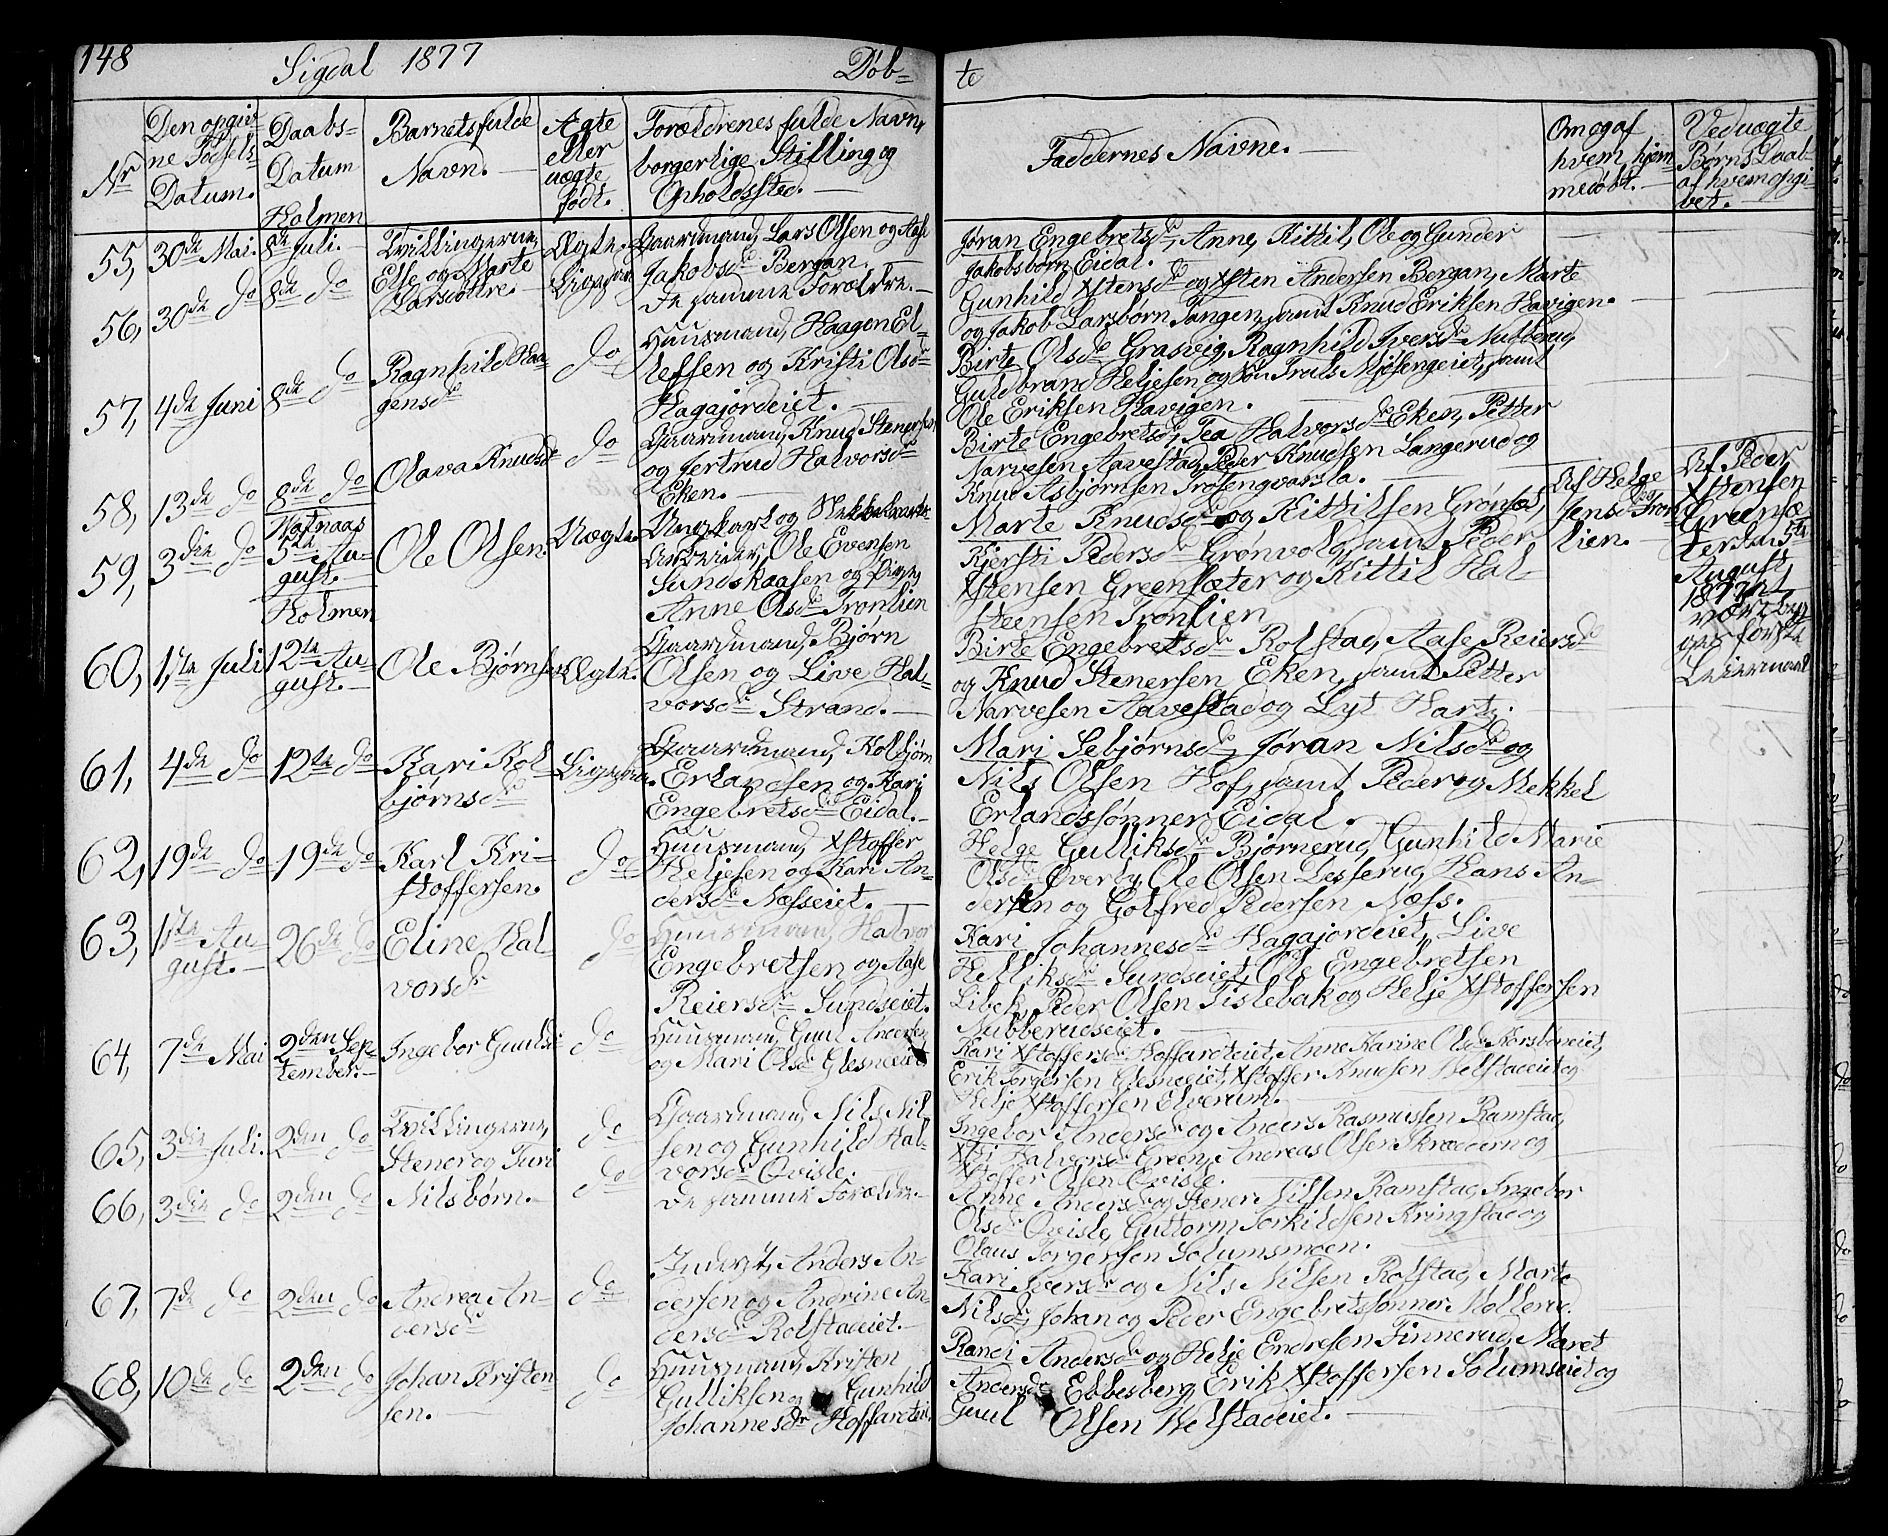 148 Sigdal 1877 Døb= te
Nr
Den opgiv=
ne Fødsels=
Datum.
Daabs=
Datum
Holmen
Barnets fulde
Navn.
Ægte
eller
uægte
født.
Forældrenes fulde Navn,
borgerlige Stilling og
Opholdssted.
Faddernes Navne.
Om og af
hvem hjem
medøbt.
Ved uægte
Børns Daab
af hvem opgi=
vet.
55, 30de Mai. 8de Juli. Tvillingerne, Ægte. Gaardmand, Lars Olsen og Aase
Else og Marte
Jakobsdr Bergan.
Jøran Engebretsdr, Anne, Kittil, Ole og Gunder
Jakobsbørn Eidal.
56, 30de do 8de do Larsdøttre. De samme Forældre.
Gunhild Xstensdr og Xsten Andersen Bergan, Marte
og Jakob Larsbørn Tangen, samt Knud Eriksen Havigen.
57, 4de Juni 8de do Ragnhild Haa=
gensdr
do
Huusmand, Haagen El=
lefsen og Kristi Olsdr
Hagajordeiet.
Birte Olsdr Grasvig, Ragnhild Iversdr Nubberud,
Guldbrand Heljesen og Truls Mjøsengeiet, samt
Ole Eriksen Havigen.
58, 13de do 8de do Olava Knudsdr do
Gaardmand, Knud Stenersen
og Jertrud Halvorsdr
Eken.
Birte Engebretsdr, Tea Halvorsdr Eken, Petter
Narvesen Aavestad, Peder Knudsen Langerud og
Knud Asbjørnsen
59, 3die do
5te Au=
gust.
Holmen
Ole Olsen. Uægte.
Ungkarl og
Arbeider, Ole Evensen
Sundskaasen og Pige,
Anne Olsdr Tronlien
Marte Knudsdr og Kittilsen Grønsæt,
Kjersti Pedersdr Grønvold, samt Peder
Xstensen Greensæter og Kittil Hal=
steensen Tronlien
Af Helge
Jensdr Tron
lien.
Af Peder
Xstensen
Greensæ
ter den 5te
August,
1877
60, 1ste Juli 12te Au=
gust.
Ole Bjørnsen Ægte.
Gaardmand, Bjørn
Olsen og Live Hal=
vorsdr Strand.
Birte Engebretsdr Rolstad, Aase Reiersdr
og Knud Stenersen Eken, samt Petter
Narvesen Aavestad og Lyt Hartz.
61, 4de do 12te do Kari Kol=
bjørnsdr
Gaardmand, Kolbjørn
Erlandsen og Kari
Engebretsdr Eidal.
Mari Sebjørnsdr, Jøran Nilsdr og
Nils Olsen Hof, samt Peder og Mekkel
Erlandssønner Eidal.
62, 19de do 19de do Karl Kri=
stoffersen.
do
Huusmand, Xstoffer
Heljesen og Kari An=
dersdr Næsseiet.
Helge Gulliksdr Bjørnerud, Gunhild Marie
Olsdr Øverby, Ole Olsen Lesserud, Hans An=
dersen og Golfred Pedersen Næss.
63, 1ste Au=
gust.
26de do Eline Hal=
vorsdr
do
Huusmand, Halvor
Engebretsen og Aase
Reiersdr Sundseiet.
Kari Johannesdr Hagajordeiet, Live
Helliksdr Sundseiet, Ole Engebretsen
Libek, Peder Olsen Tislebak og Helje Xstoffersen
Nubberudseiet.
64, 7de Mai 2den Sep=
tember.
Ingebor Guulsdr do
Huusmand, Guul Andersen,
og Mari Olsdr Glesneeiet
Kari Xstoffersdr Hoffarteiet, Anne Karine Olsdr Korsboneiet,
Erik Torgersen Glesneeiet, Xstoffer Knudsen Welstadeiet og
Helje Xstoffersen Elverum.
65, 3die Juli. 2den do Tvillingerne,
Stener og Turi
do
Gaardmand, Nils Nil=
sen og Gunhild Hal=
vorsdr Qvisle.
Ingebor Andersdr og Anders Rasmussen Ramstad,
Xsti Halvorsdr Green, Andreas Olsen Skrædern og
Xstoffer Olsen Qvisle.
66, 3die do 2den do Nilsbørn. do De samme Forældre.
Anne Andersdr og Stener Nilsen Ramstad, Ingebor
Olsdr Qvisle, Guttorm Torkildsen Kringstad og
Olaus Torgersen Solumsmoen.
67, 7de do 2den do Andrea An=
dersdr
do
Inderst, Anders An=
dersen og Andrine An=
dersdr Rolstadeiet.
Kari Iversdr og Nils Nilsen Rolstad, Marte
Nilsdr, Johan og Peder Engebretssønner Mollerud.
68, 10de do 2den do Johan Kristen
sen.
do
Huusmand, Kristen
Gulliksen og Gunhild
Johannesdr Hoffarteiet.
Randi Andersdr og Helje Endresen Finnerud, Maret
Andersdr Ebbesberg, Erik Xstoffersen Solumseiet og
Guul Olsen Welstadeiet.